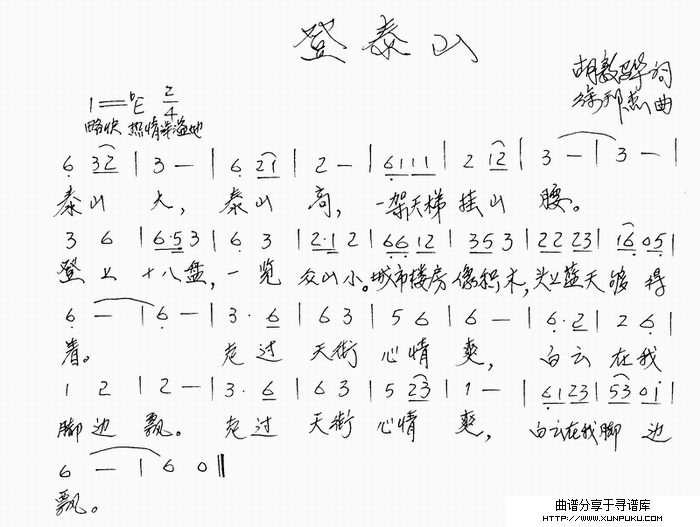 登泰山
胡敦骅词
徐邦杰曲
1=♭E 2/4
略快 热情洋溢地
6 32 | 3 — | 6 21 | 2 — | 6111 | 2 12 | 3 — | 3 — |
泰山大，泰山高，一架天梯挂山腰。
3 6 | 6·5 3 | 6 3 | 2·1 2 | 66 12 | 35 3 | 22 23 | 16 05 |
登上十八盘，一览众山小。城市楼房像积木，头上蓝天够得
6 — | 6 — | 3· 6 | 6 3 | 5 6 | 6 — | 6·2 | 2 6 |
着。走过天街心情爽，白云在我
1 2 | 2 — | 3· 6 | 6 3 | 5 23 | 1 — | 6123 | 53 01 |
脚边飘。走过天街心情爽，白云在我脚边
6 — | 6 0 ‖
飘。
曲谱分享于寻谱库
HTTP://WWW.XUNPUKU.COM